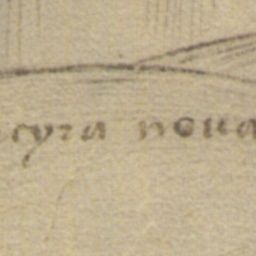 cyra noua